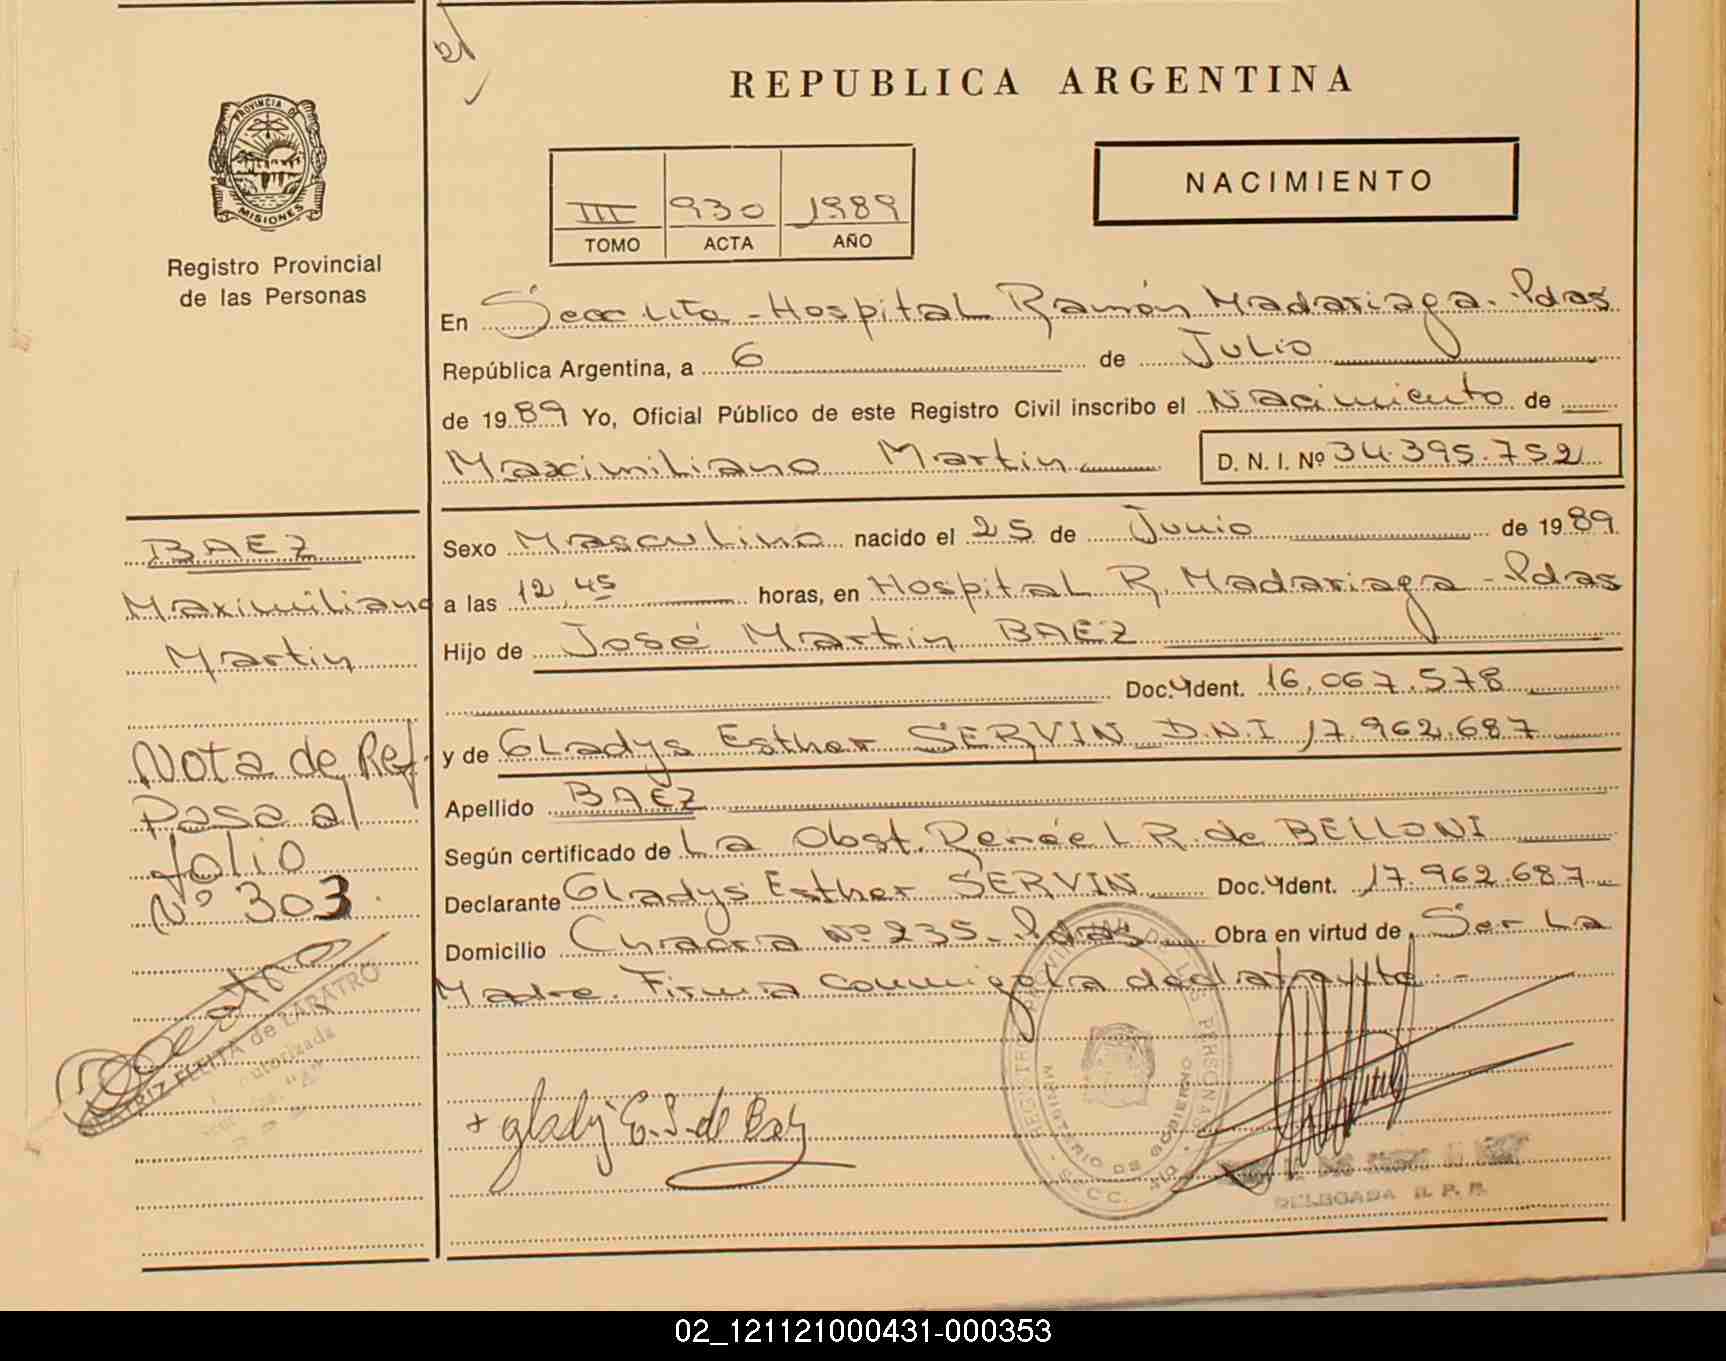 REPUBLICA ARGENTINA
PROVINCIA DE
MISIONES
Registro Provincial
de las Personas
III 930 1989
TOMO ACTA AÑO
NACIMIENTO
En Hospital Ramón Madariaga - Pdas
República Argentina, a 6 de Julio
de 1989 Yo, Oficial Público de este Registro Civil inscribo el Nacimiento de
Maximiliano Martin D. N. I. Nº 34.395.752
BAEZ
Maximiliano
Martin
Nota de Ref.
Pasa al
folio
Nº 303
Sexo Masculino nacido el 25 de Junio de 1989
a las 12,45 horas, en Hospital R. Madariaga - Pdas
Hijo de José Martin BAEZ
Doc. Ident. 16.067.578
y de Gladys Esther SERVIN D.N.I 17.962.687
Apellido BAEZ
Según certificado de La Obst. Renée L. R. de BELLONI
Declarante Gladys Esther SERVIN Doc. Ident. 17.962.687
Domicilio Chacra Nº 235 - Pdas Obra en virtud de Ser La
Madre. Firma conmigo la declarante -
+ Gladys E. S. de Baez
REGISTRO PROVINCIAL DE LAS PERSONAS
MINISTERIO DE GOBIERNO
FLEITA de ZARATRO
DELEGADA R. P. P.
02_121121000431-000353